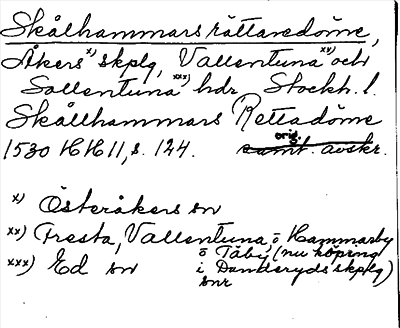 Skålhammars rättaredöme,
Åkers x) skplg, Vallentuna xx) och
Sollentuna xxx) hdr Stockh. l.
Skållhammars Rettadöme
orig.
1530 HH 11, s. 124. samt. avskr.
x) Österåkers sn
xx) Fresta, Vallentuna, ö Hammarby
ö Täby, (nu köping
xxx) Ed sn i Danderyds skplg)
snr